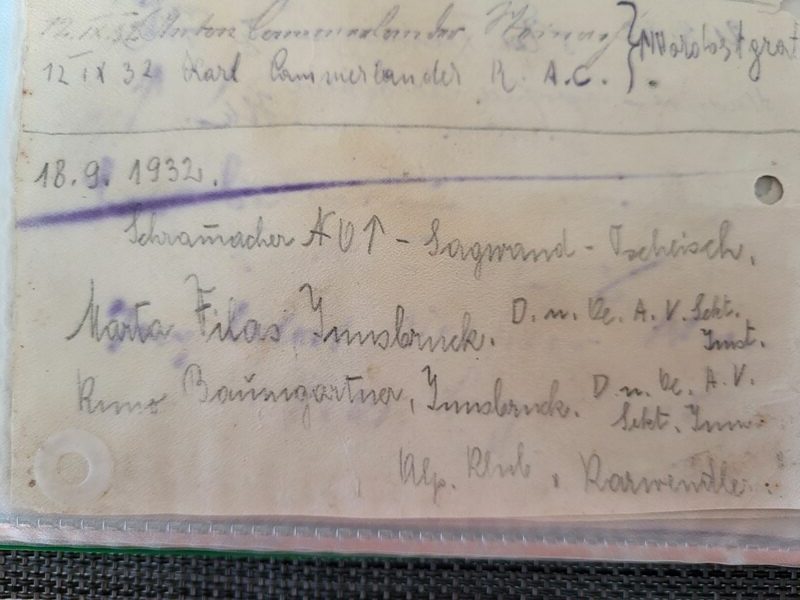 12.IX.32 Anton Cammerlander
12 IX 32 Karl Cammerlander R. A.C. } Nordostgrat.
18.9. 1932.
Schram̄acher NO↑ - Sagwand - Tscheisch.
Marta Filas Innsbruck. D. u. Oe. A. V. Sekt.
Imst.
Runo Baumgartner, Innsbruck. D. u. Oe. A. V.
Sekt. Inns.
Alp. Klub, Karwendler.